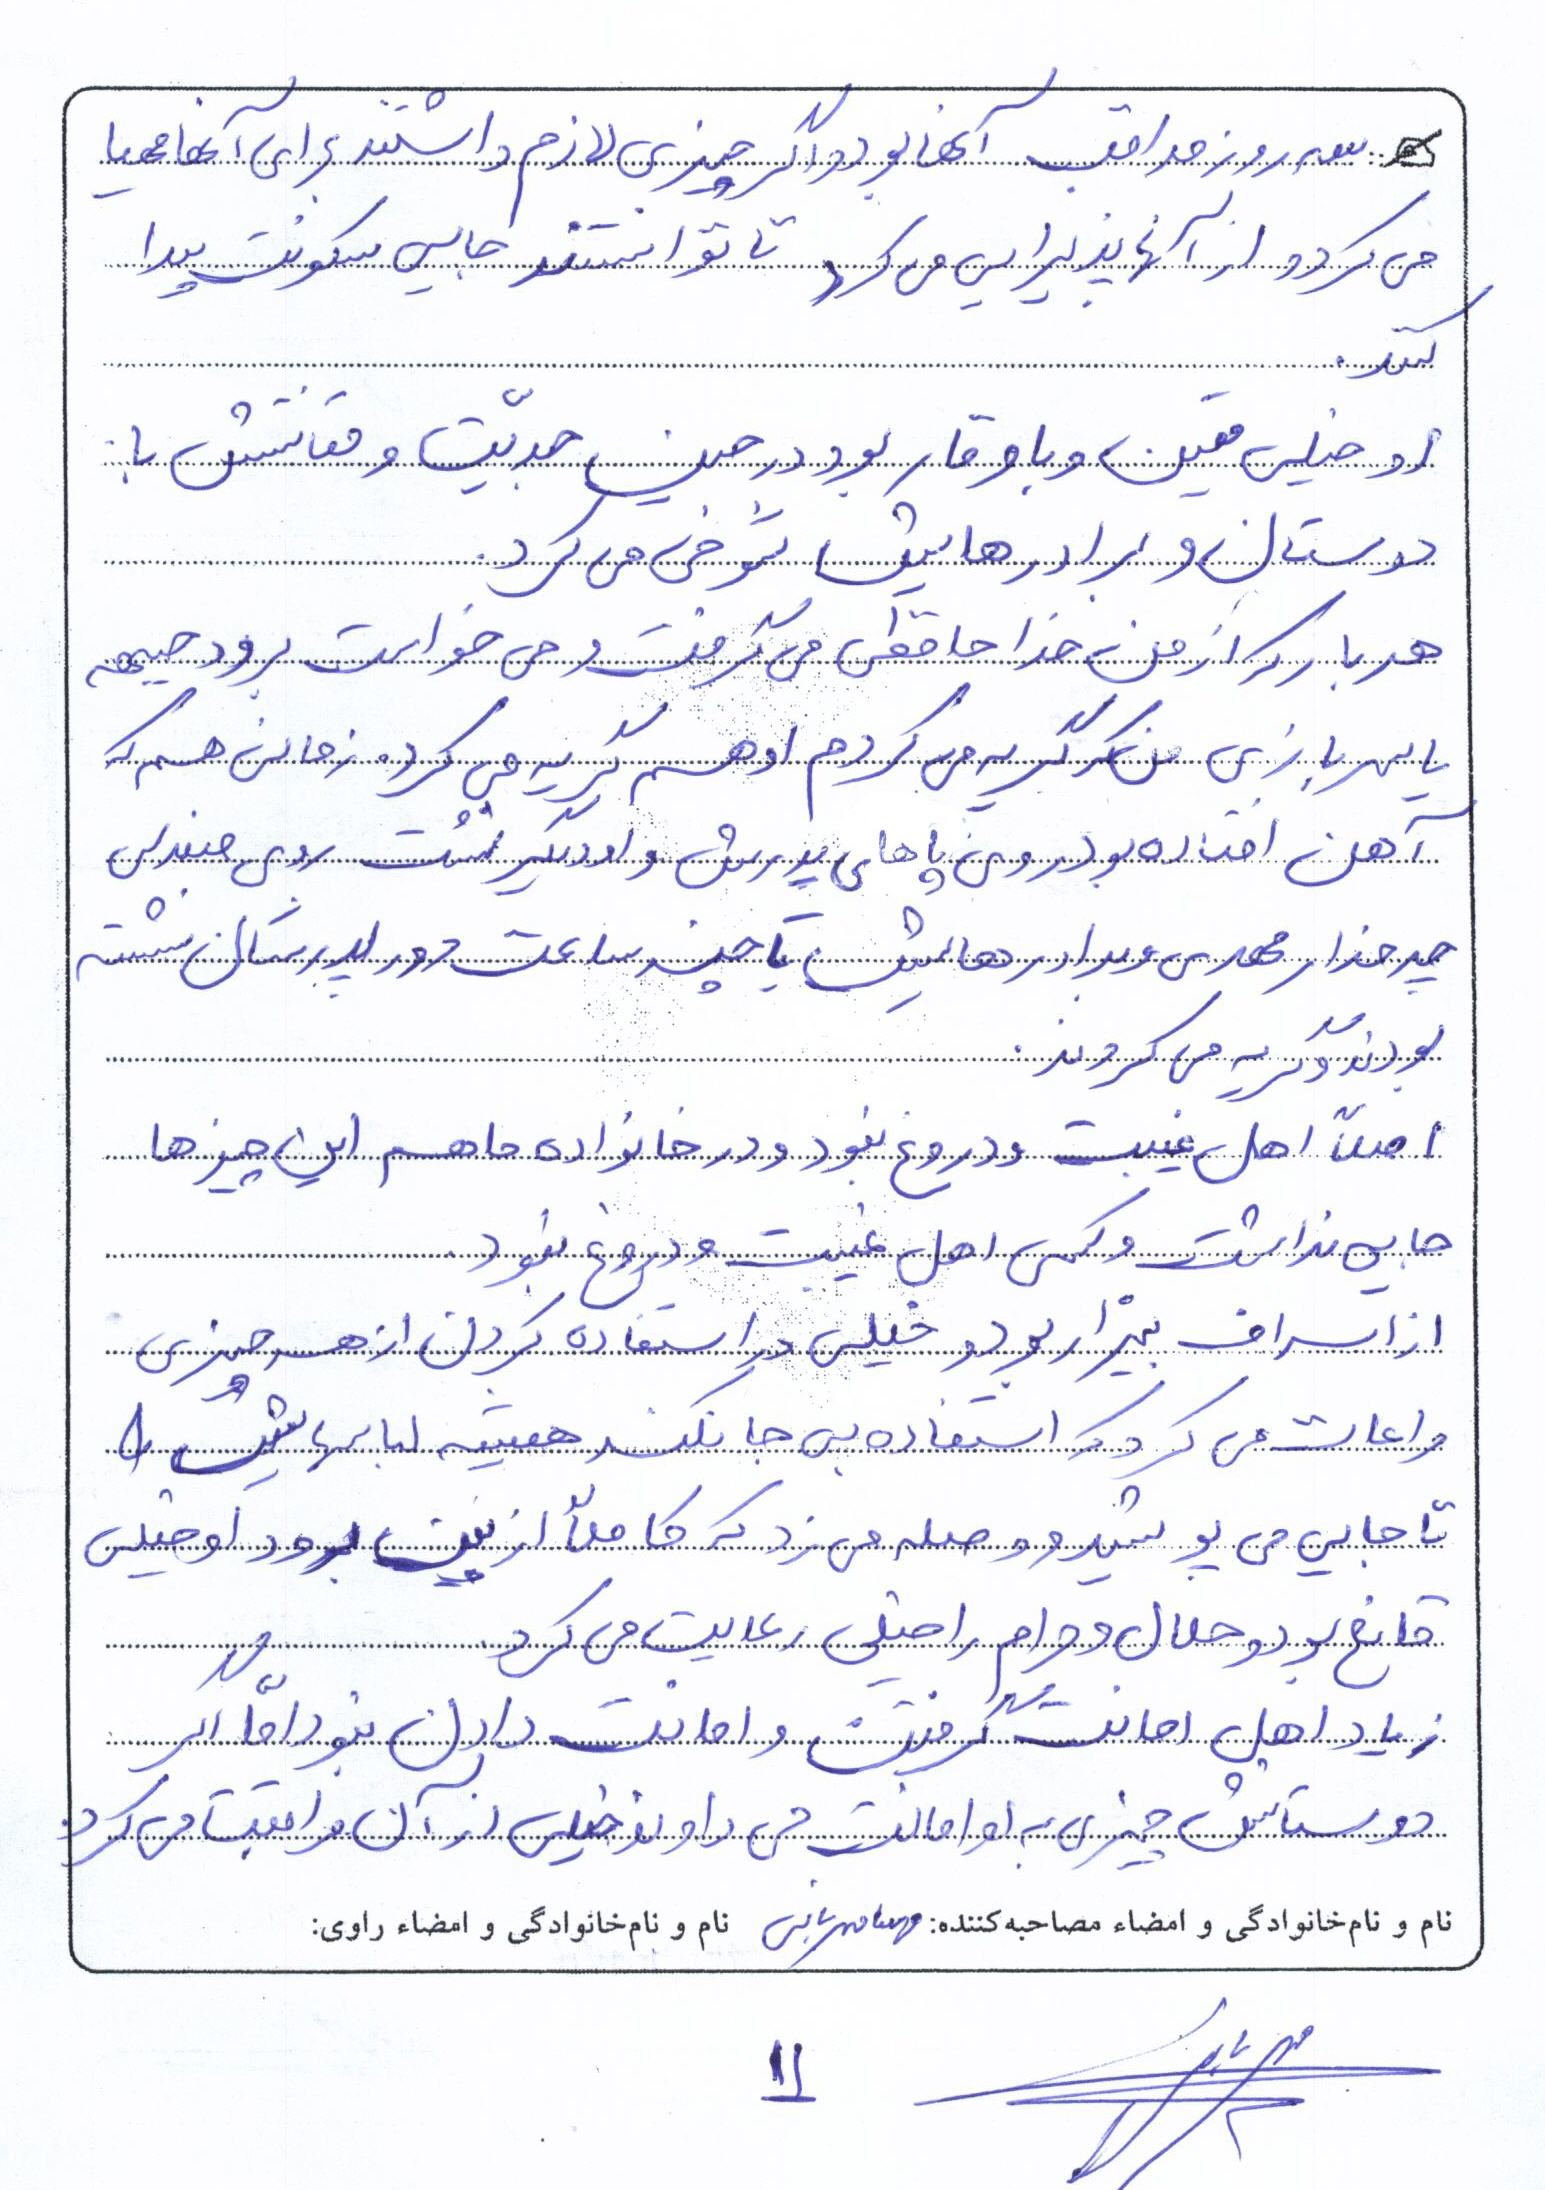 سه روز مراقب آنها بود و اگر چیزی لازم داشتند برای آنها مهیا
می کرد و از آنها پذیرایی می کرد تا توانستند جایی سکونت پیدا
کنند.
او خیلی متین و با وقار بود در حین جدیّت و متانتش با
دوستان و برادرهایش شوخی می کرد.
هر بار که از من خداحافظی می گرفت و می خواست برود جبهه
یا سربازی من که گریه می کردم او هم گریه می کرد. زمانی هم که
آهن افتاده بود روی پاهای پدرش و او دیگر نشست روی صندلی
چرخدار مهدی و برادرهایش تا چند ساعت دور پدرشان نشسته
بودند و گریه می کردند.
اصلاً اهل غیبت و دروغ نبود و در خانواده ما هم این چیزها
جایی نداشت و کسی اهل غیبت و دروغ نبود.
از اسراف بیزار بود و خیلی در استفاده کردن از هر چیزی
مراعات می کرد که استفاده بی جا نکند همیشه لباسهایش را
تا جایی می پوشید و وصله می زد که کاملاً از بین برود او خیلی
قانع بود و حلال و حرام را خیلی رعایت می کرد.
زیاد اهل امانت گرفتن و امانت دادن نبود امّا اگر
دوستانش چیزی به او امانت می دادند خیلی از آن مراقبت می کرد.
نام و نام‌خانوادگی و امضاء مصاحبه‌کننده: نام و نام‌خانوادگی و امضاء راوی:
۱۱